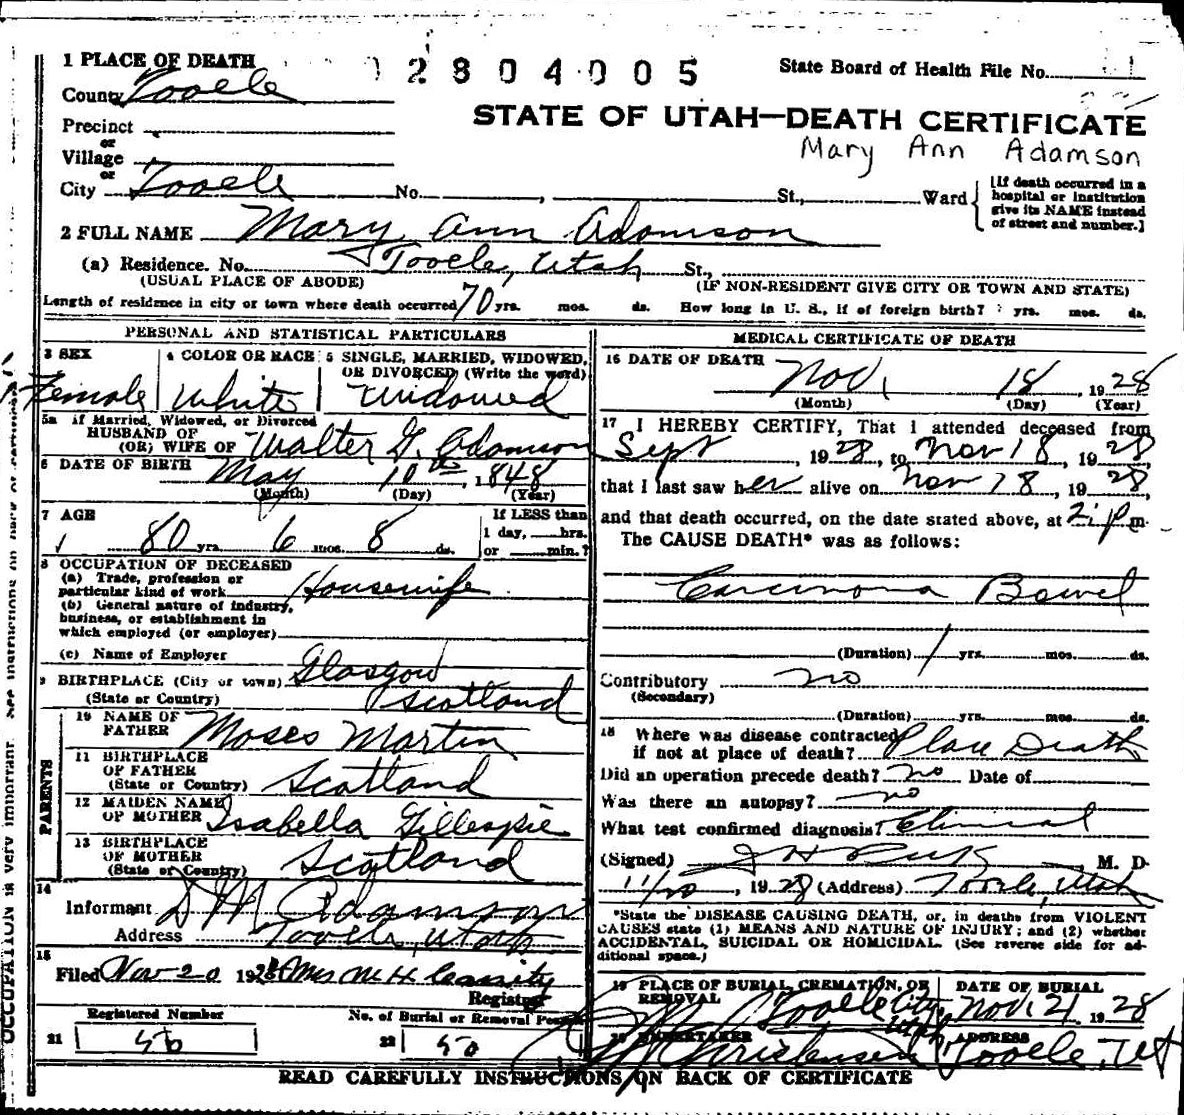 1 PLACE OF DEATH
2804005
State Board of Health File No.
County Tooele
STATE OF UTAH—DEATH CERTIFICATE
Precinct
or
Mary Ann Adamson
Village
or
City Tooele No. , St., Ward
[If death occurred in a hospital or institution give its NAME instead of street and number.]
2 FULL NAME Mary Ann Adamson
(a) Residence. No. Tooele, Utah St.,
(USUAL PLACE OF ABODE) (IF NON-RESIDENT GIVE CITY OR TOWN AND STATE)
Length of residence in city or town where death occurred 70 yrs. mos. ds. How long in U. S., if of foreign birth? yrs. mos. ds.
PERSONAL AND STATISTICAL PARTICULARS
3 SEX
Female
4 COLOR OR RACE
White
5 SINGLE, MARRIED, WIDOWED,
OR DIVORCED (Write the word)
Widowed
5a if Married, Widowed, or Divorced
HUSBAND OF
(OR) WIFE OF Walter G. Adamson
6 DATE OF BIRTH
May 10th, 1848
(Month) (Day) (Year)
7 AGE
80 yrs. 6 mos. 8 ds.
If LESS than
1 day, hrs.
or min.?
8 OCCUPATION OF DECEASED
(a) Trade, profession or
particular kind of work Housewife
(b) General nature of industry,
business, or establishment in
which employed (or employer)
(c) Name of Employer
9 BIRTHPLACE (City or town) Glasgow
(State or Country) Scotland
PARENTS
10 NAME OF
FATHER Moses Martin
11 BIRTHPLACE
OF FATHER
(State or Country) Scotland
12 MAIDEN NAME
OF MOTHER Isabella Gillespie
13 BIRTHPLACE
OF MOTHER
(State or Country) Scotland
14
Informant D M Adamson
Address Tooele, Utah
15
Filed Nov 20 1928 Mrs M H Cassity
Registrar
Registered Number No. of Burial or Removal Permit
21 50 22 50
MEDICAL CERTIFICATE OF DEATH
16 DATE OF DEATH
Nov. 18 1928
(Month) (Day) (Year)
17 I HEREBY CERTIFY, That I attended deceased from
Sept , 1928, to Nov 18, 1928
that I last saw her alive on Nov 18, 1928,
and that death occurred, on the date stated above, at 2: p m.
The CAUSE DEATH* was as follows:
Carcinoma Bowel
(Duration) 1 yrs. mos. ds.
Contributory no
(Secondary)
(Duration) yrs. mos. ds.
18 Where was disease contracted
if not at place of death? Place Death
Did an operation precede death? no Date of
Was there an autopsy? no
What test confirmed diagnosis? Clinical
(Signed) M. D.
11/20, 1928 (Address) Tooele, Utah
*State the DISEASE CAUSING DEATH, or, in deaths from VIOLENT
CAUSES state (1) MEANS AND NATURE OF INJURY; and (2) whether
ACCIDENTAL, SUICIDAL OR HOMICIDAL. (See reverse side for ad-
ditional space.)
19 PLACE OF BURIAL, CREMATION, OR
REMOVAL
Tooele City Utah
DATE OF BURIAL
Nov. 21 1928
20 UNDERTAKER
Christensen
ADDRESS
Tooele, Ut
READ CAREFULLY INSTRUCTIONS ON BACK OF CERTIFICATE